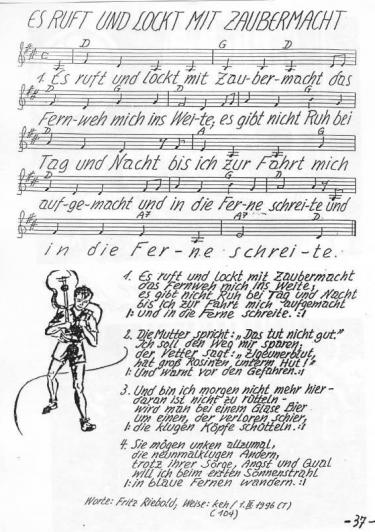 ES RUFT UND LOCKT MIT ZAUBERMACHT
D G D
1. Es ruft und lockt mit Zau-ber-macht das
Fern-weh mich ins Wei-te, es gibt nicht Ruh bei
Tag und Nacht bis ich zur Fahrt mich
auf-ge-macht und in die Fer-ne schrei-te und
in die Fer-ne schrei-te.
1. Es ruft und lockt mit Zaubermacht
das Fernweh mich ins Weite,
es gibt nicht Ruh bei Tag und Nacht
bis ich zur Fahrt mich aufgemacht
|: und in die Ferne schreite. :|
2. Die Mutter spricht: „Das tut nicht gut."
Ich soll den Weg mir sparen;
der Vetter sagt: „Zigeunerblut,
hat groß Rosinen unterm Hut!"
|: Und warnt vor den Gefahren. :|
3. Und bin ich morgen nicht mehr hier -
daran ist nicht zu rütteln -
wird man bei einem Glase Bier
um einen, der verloren schier,
|: die klugen Köpfe schütteln. :|
4. Sie mögen unken allzumal,
die neinmalklugen Andern,
trotz ihrer Sorge, Angst und Qual
will ich beim ersten Sonnenstrahl
|: in blaue Fernen wandern. :|
Worte: Fritz Riebold, Weise: keh / 1. 1996 (T)
(104)
- 37 -